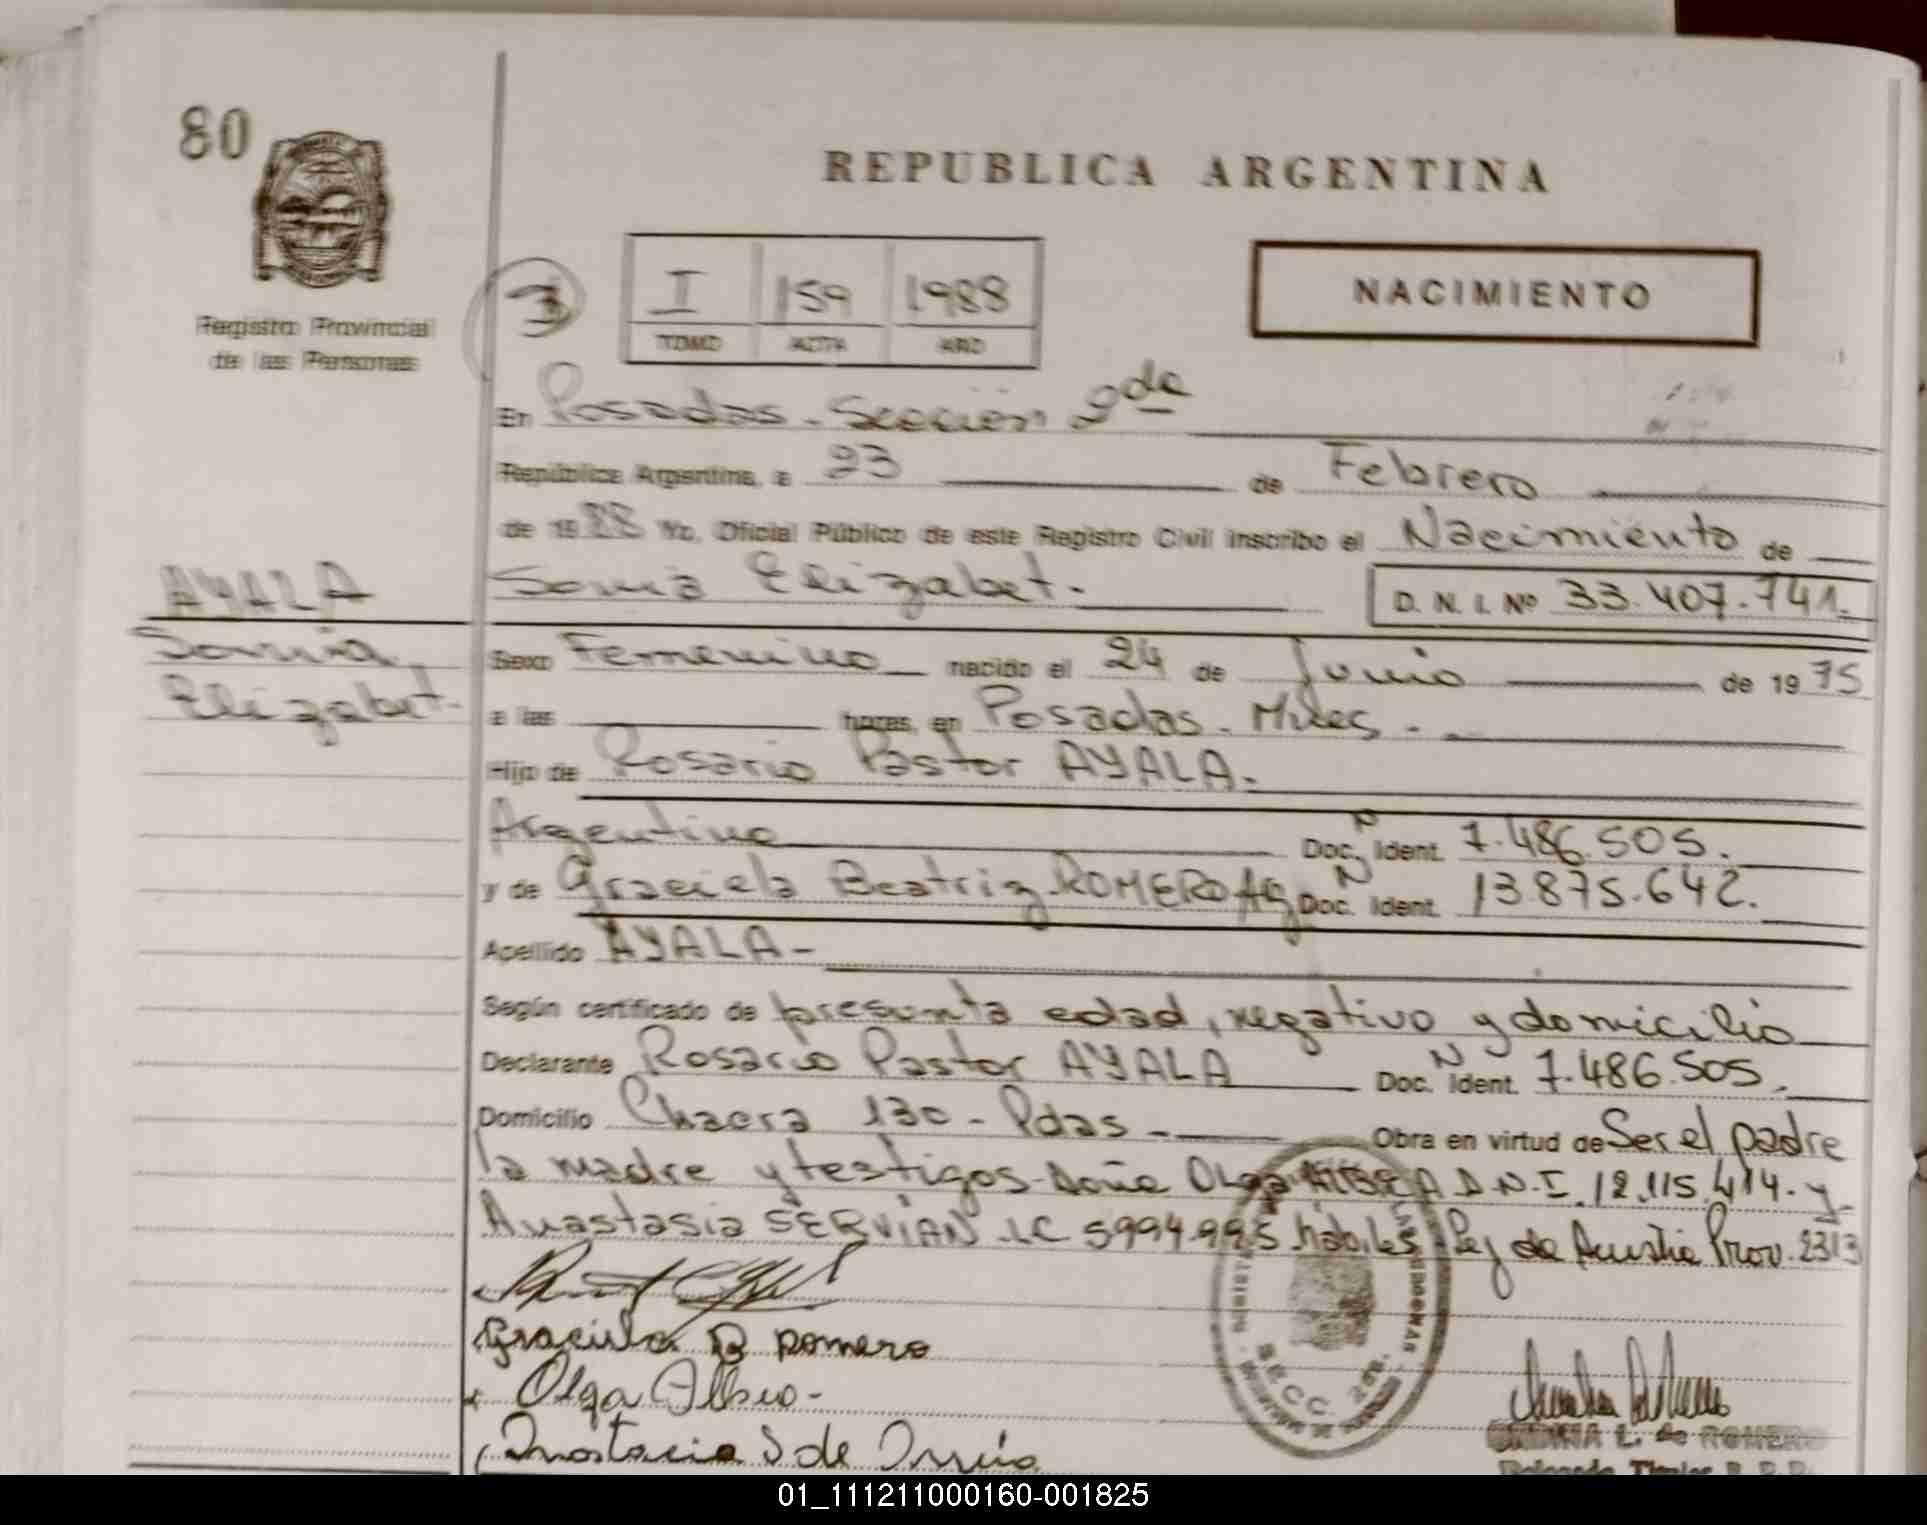 80
REPUBLICA ARGENTINA
Registro Provincial
de las Personas
3
I 159 1988
TOMO ACTA AÑO
NACIMIENTO
En Posadas - Sección 2da
República Argentina, a 23 de Febrero
de 1988 Yo, Oficial Público de este Registro Civil inscribo el Nacimiento de
Sonia Elizabet.- D. N. I. Nº 33.407.741.
AYALA
Sonia
Elizabet.
Sexo Femenino nacido el 24 de Junio de 1975
a las horas, en Posadas - Mnes.-
Hijo de Rosario Pastor AYALA.
Argentino Doc. Ident. N 7.486.505.
y de Graciela Beatriz ROMERO Ag Doc. Ident. N 13.875.642.
Apellido AYALA-
Según certificado de presunta edad, negativo y domicilio
Declarante Rosario Pastor AYALA Doc. Ident. N 7.486.505.
Domicilio Chacra 130 - Pdas - Obra en virtud de Ser el padre
la madre y testigos - doña Olga D.N.I. 12.115.414. y
Anastasia SERVIAN LC 5994.995 hábiles Ley de Prov. 2313
Graciela B Romero
Olga
S de
SECC. 2da.
L. de ROMERO
01_111211000160-001825